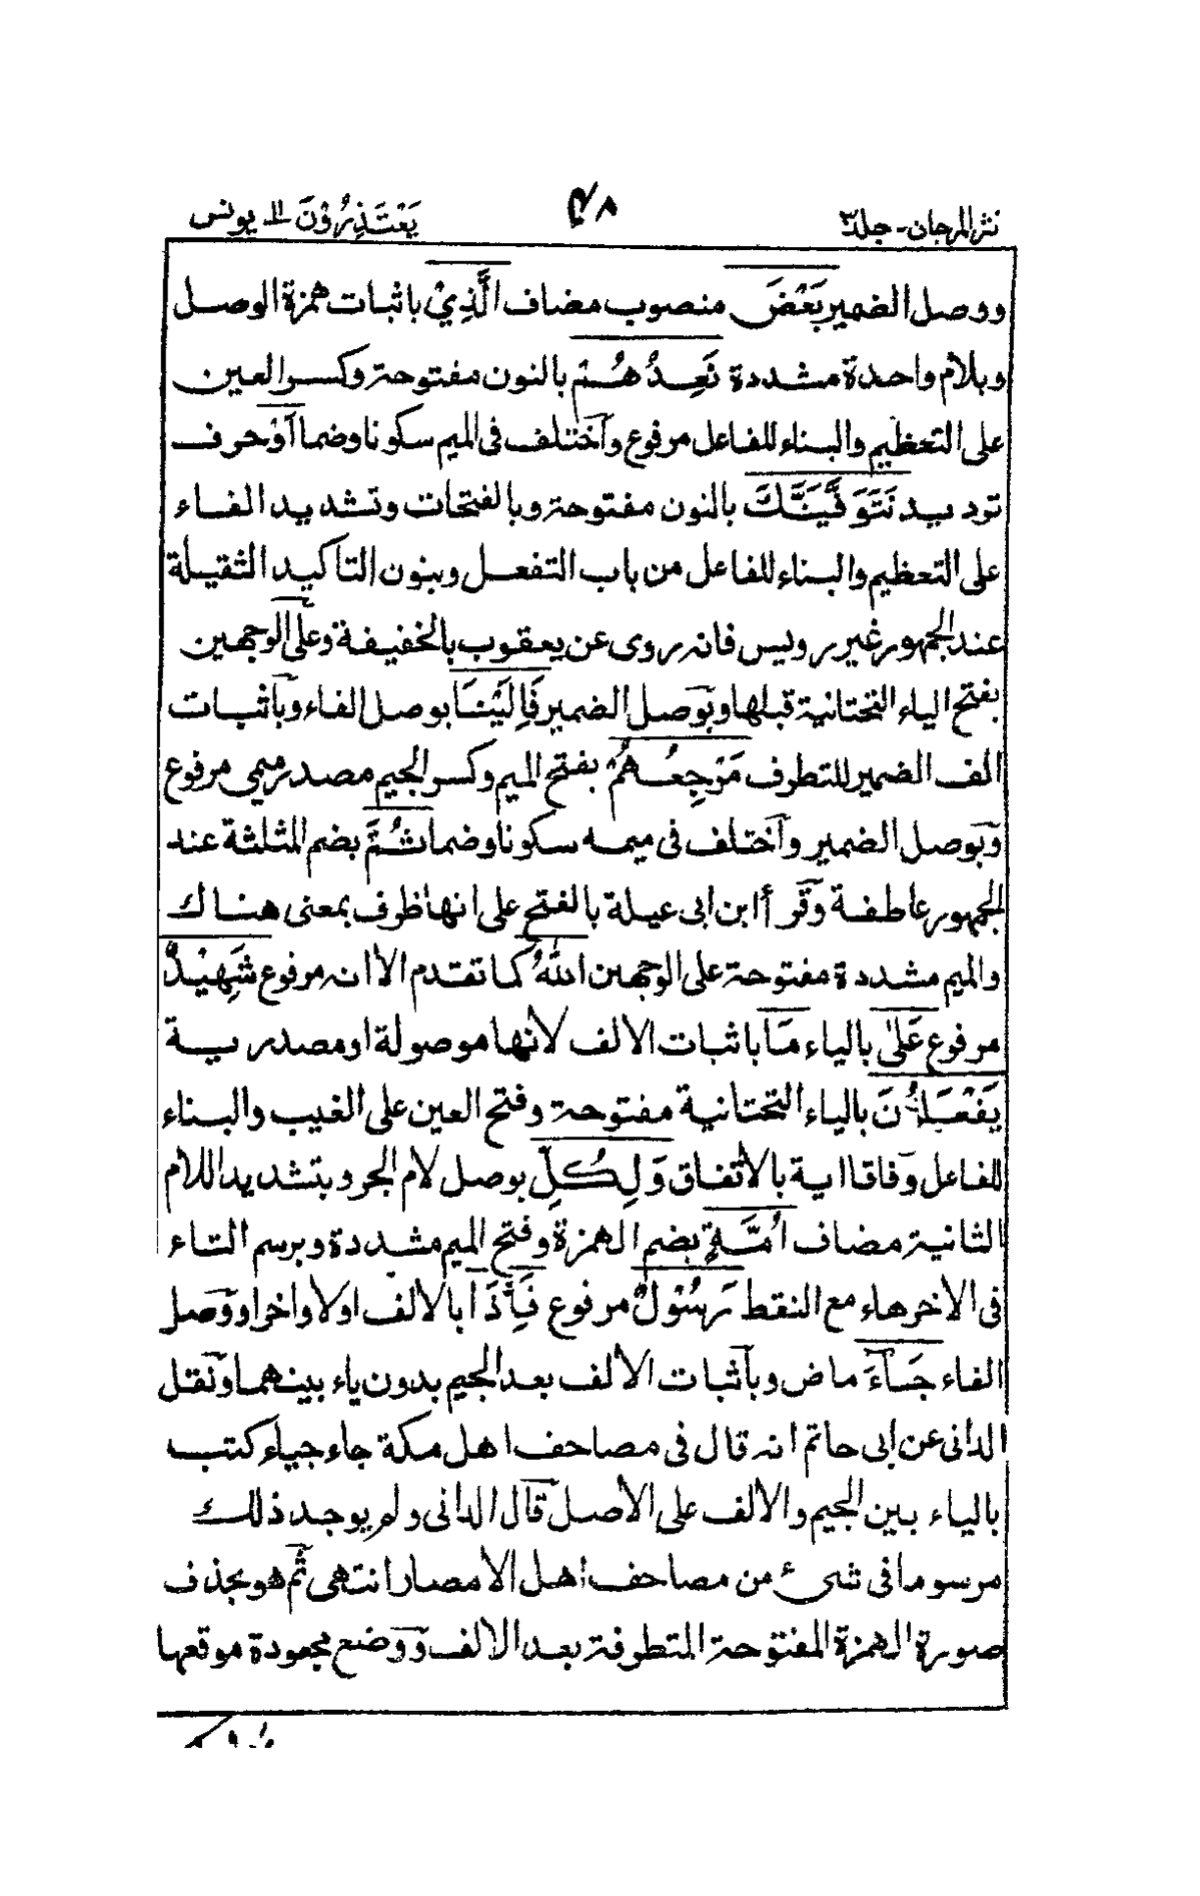 نثر المرجان - جلد ٣ ٤٨ يَعْتَذِرُوْنَ ١١ يونس
ووصل الضمير بَعْضَ منصوب مضاف الَّذِيْ باثبات همزة الوصل
وبلام واحدة مشددة نَعِدُهُمْ بالنون مفتوحة وكسر العين
على التعظيم والبناء للفاعل مرفوع وآختلف فى الميم سكونا وضما آوْ حرف
ترديد نَتَوَفَّيَنَّكَ بالنون مفتوحة وبالفتحات وتشديد الفاء
على التعظيم والبناء للفاعل من باب التفعل وبنون التاكيد الثقيلة
عند الجمهور غير رويس فانه روى عن يعقوب بالخفيفة وعلى الوجهين
بفتح الياء التحتانية قبلها وبوصل الضمير فَاِلَيْنَا بوصل الفاء وبآثبات
الف الضمير للتطرف مَرْجِعُهُمْ بفتح الميم وكسر الجيم مصدر ميمى مرفوع
وبوصل الضمير وآختلف فى ميمه سكونا وضما ثُمَّ بضم المثلثة عند
الجمهور عاطفة وقرأ ابن ابى عبلة بالفتح على انها ظرف بمعنى هناك
والميم مشددة مفتوحة على الوجهين اللهُ كما تقدم الا انه مرفوع شَهِيْدٌ
مرفوع عَلٰى بالياء مَا باثبات الالف لانها موصولة او مصدرية
يَفْعَلُوْنَ بالياء التحتانية مفتوحة وفتح العين على الغيب والبناء
للفاعل وفاقا اية بالاتفاق وَلِكُلِّ بوصل لام الجر وبتشديد اللام
الثانية مضاف اُمَّةٍ بضم الهمزة وفتح الميم مشددة وبرسم التاء
فى الاخر هاء مع النقط رَسُوْلٌ مرفوع فَاِذَا بالالف اولا واخرا ووصل
الفاء جَآءَ ماض وبآثبات الالف بعد الجيم بدون ياء بينهما ونقل
الدانى عن ابى حاتم انه قال فى مصاحف اهل مكة جاء جياء كتب
بالياء بين الجيم والالف على الاصل قال الدانى ولم يوجد ذلك
مرسوما فى شىء من مصاحف اهل الامصار انتهى ثم هو بحذف
صورة الهمزة المفتوحة المتطرفة بعد الالف ووضع مجعودة موقعها